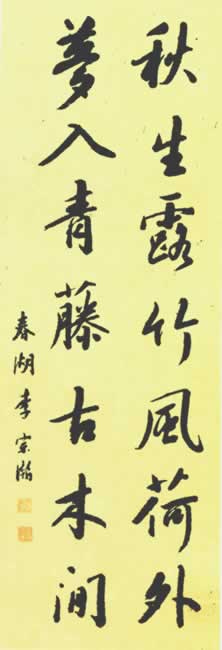 秋生露竹風荷外
夢入青藤古木間
春湖李宗瀚